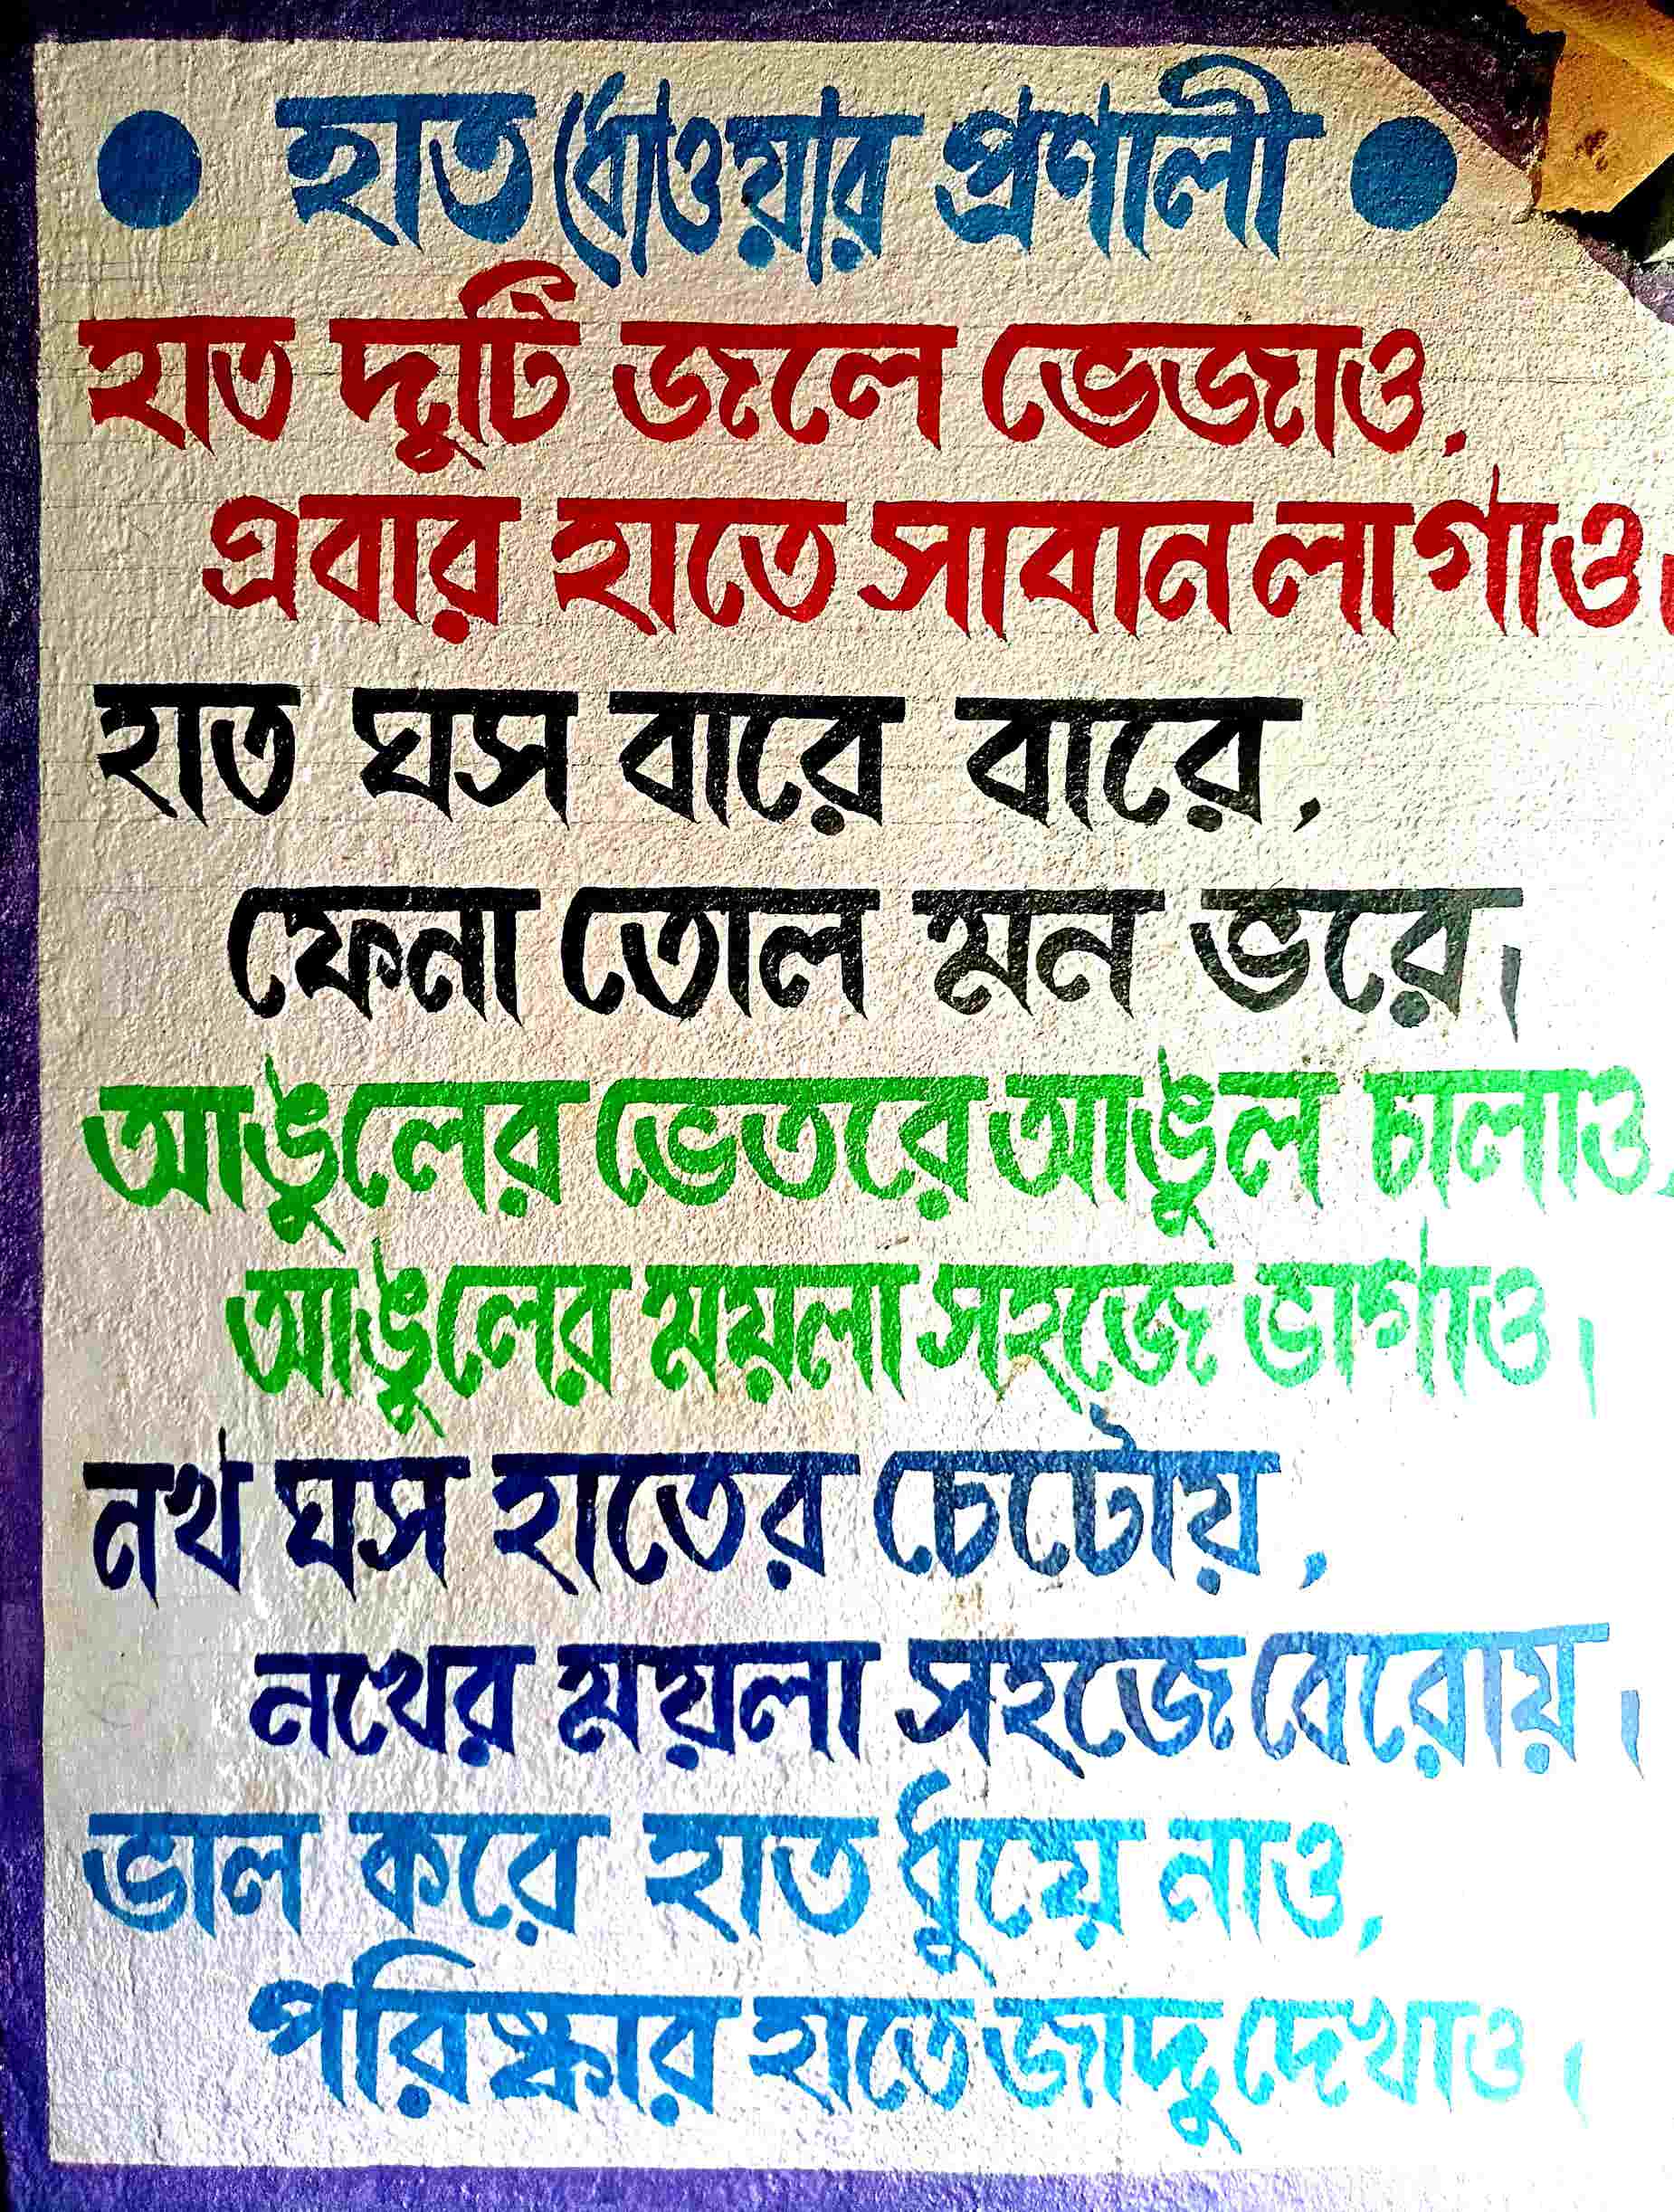 • হাত ধোওয়ার প্রণালী •
হাত দুটি জলে ভেজাও,
এবার হাতে সাবান লাগাও।
হাত ঘস বারে বারে,
ফেনা তোল মন ভরে।
আঙুলের ভেতরে আঙুল চালাও,
আঙুলের ময়লা সহজে ভাগাও।
নখ ঘস হাতের চেটোয়,
নখের ময়লা সহজে বেরোয়।
ভাল করে হাত ধুয়ে নাও,
পরিস্কার হাতে জাদু দেখাও।